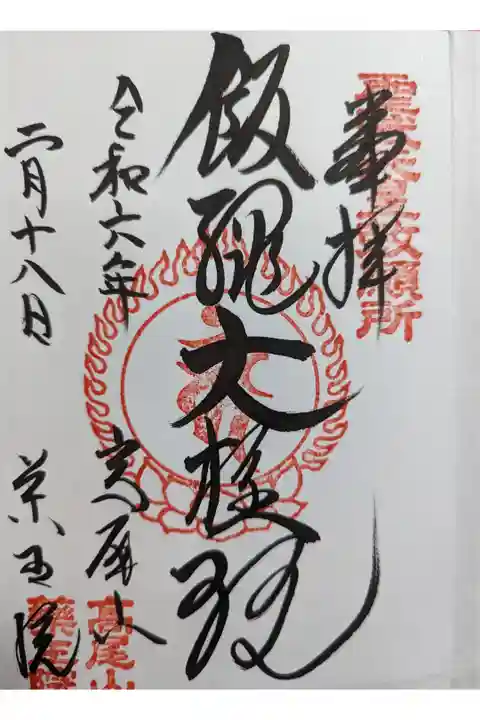 奉拝
飯縄大権現
令和六年
二月十八日
高尾山
薬王院
高尾山